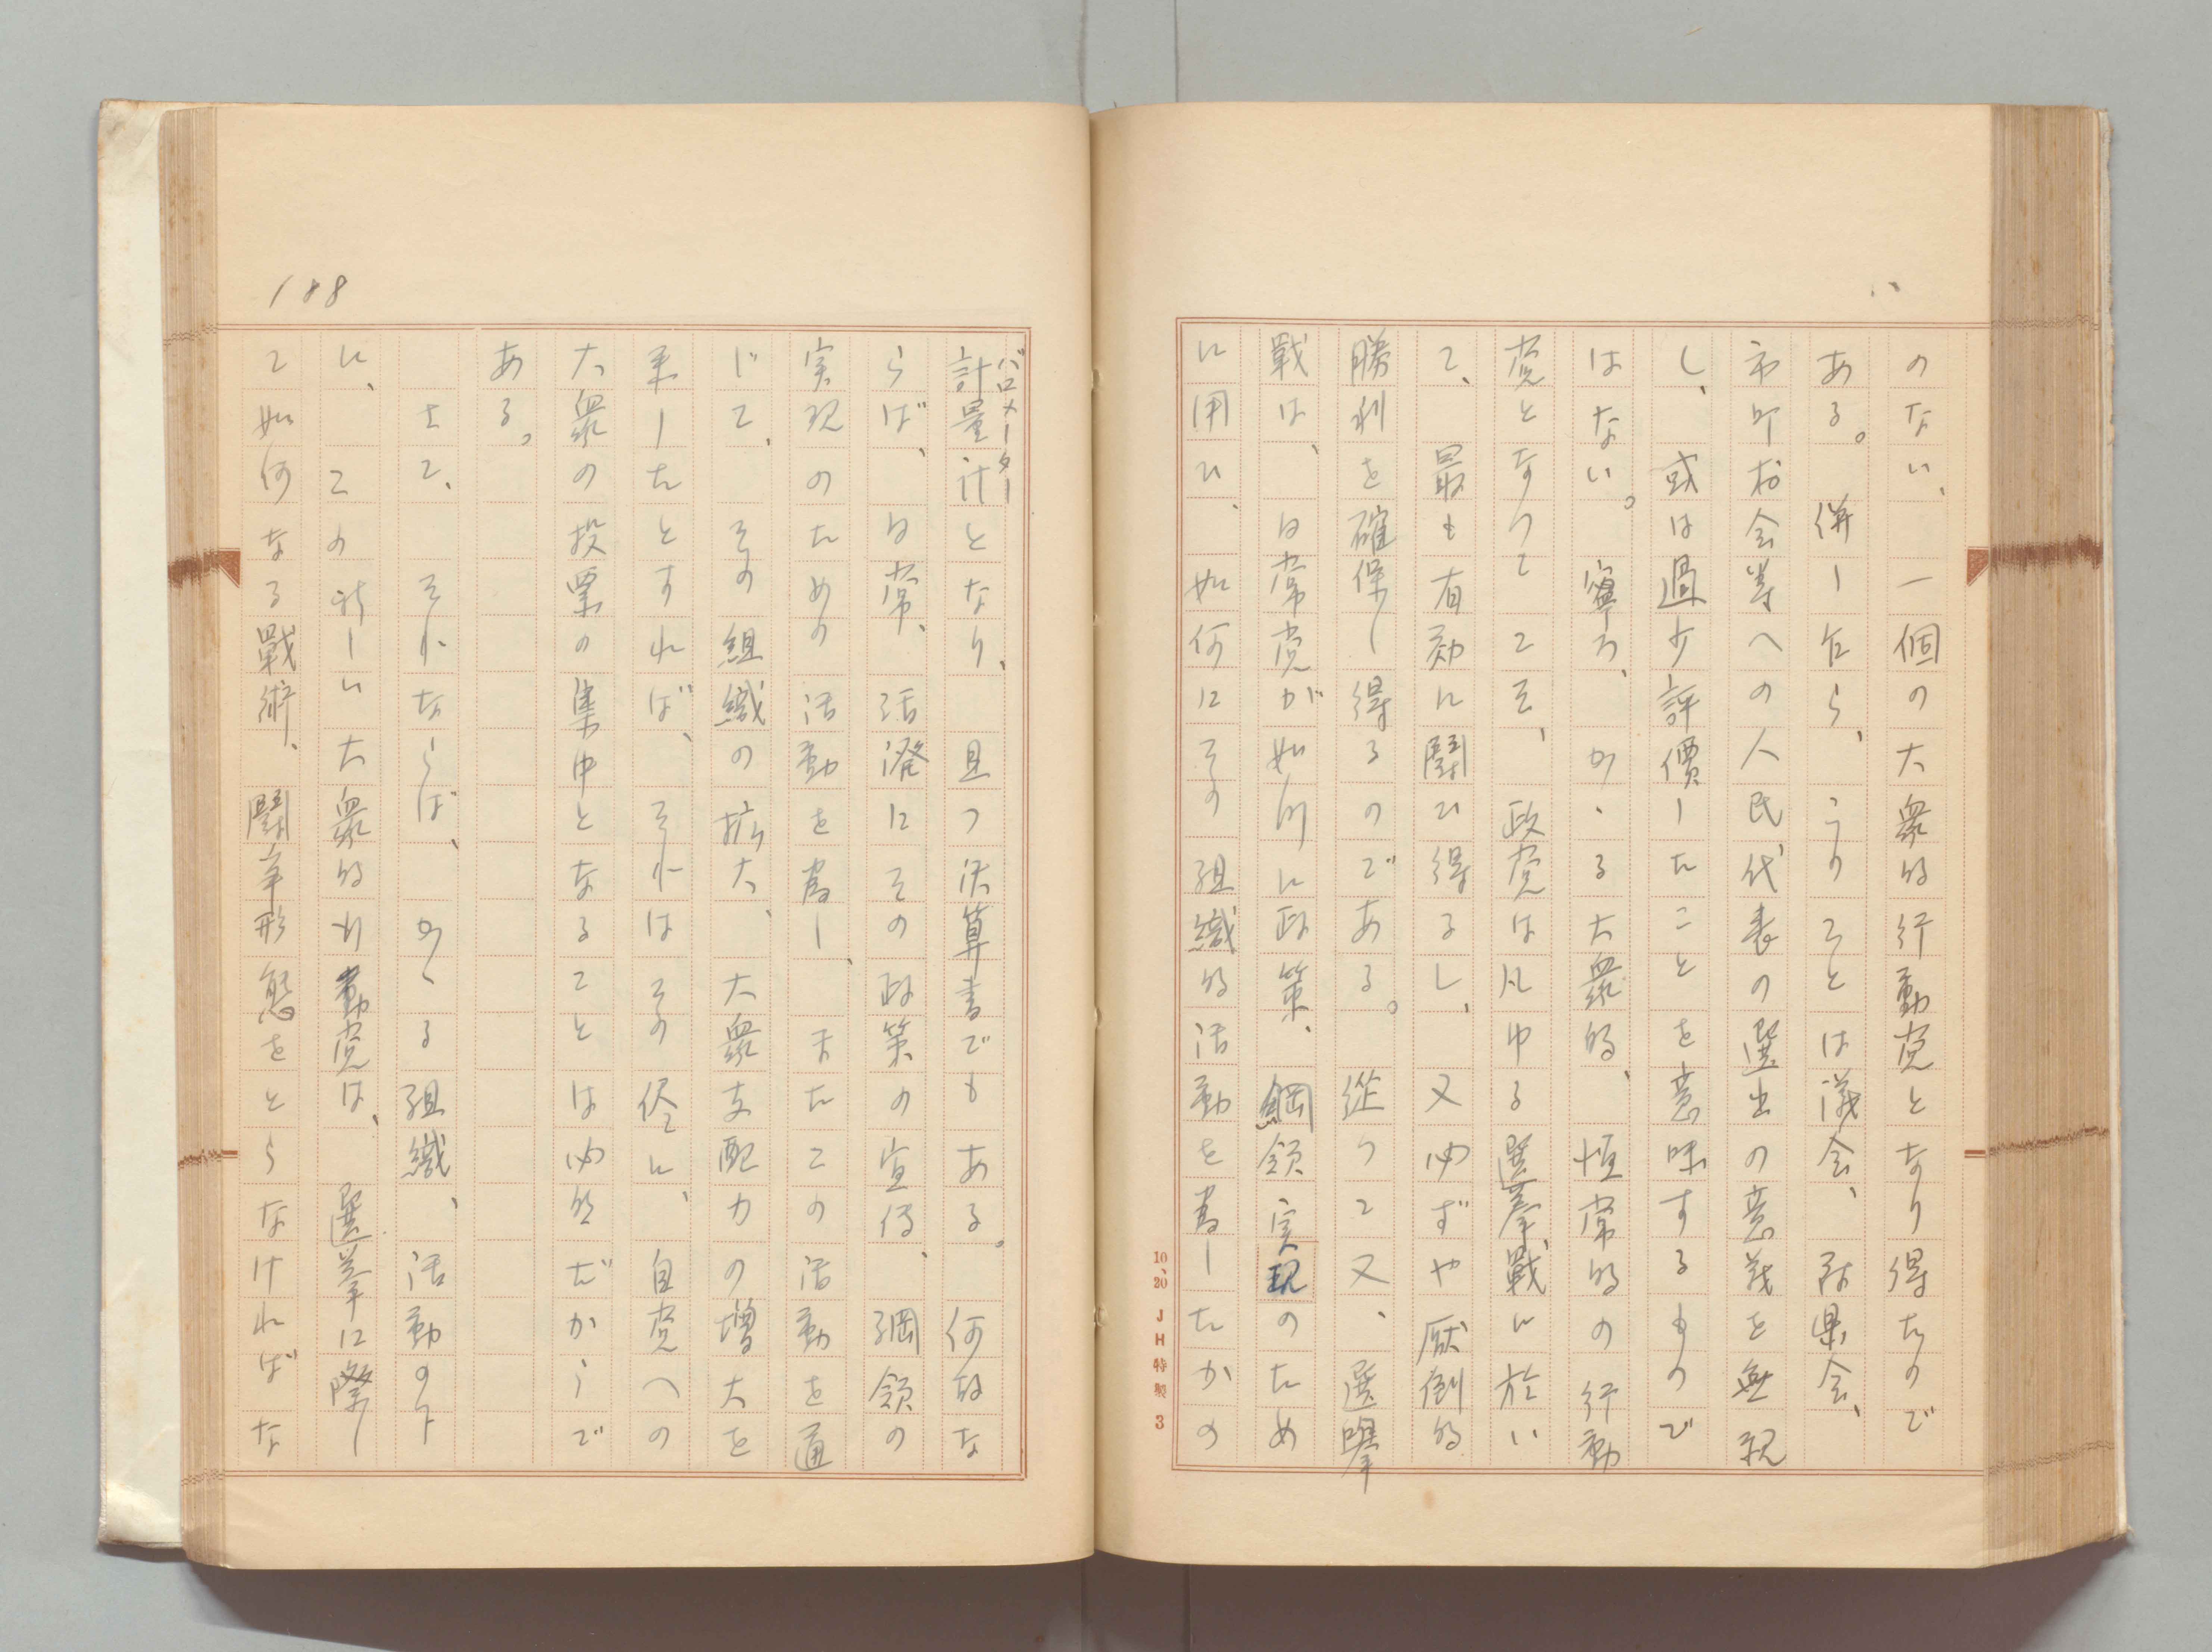 のない、一個の大衆的行動党となり得たので
ある。併し乍ら、このことは議会、府県会、
市町村会等への人民代表の選出の意義を無視
し、或は過少評價したことを意味するもので
はない。寧ろ、かゝる大衆的、恒常的の行動
党となりてこそ、政党は凡ゆる選挙戰に於い
て、最も有効に闘ひ得るし、又必ずや圧倒的
勝利を確保し得るのである。從つて又、選擧
戰は、日常党が如何に政策、綱領実現のため
に用ひ、如何にその組織的活動を為したかの
10、20 JH特製 3
188
バロメーター
計量計となり、且つ決算書でもある。何故な
らば、日常、活溌にその政策の宣傳、綱領の
実現のための活動を為し、またこの活動を通
じて、その組織の拡大、大衆支配力の増大を
来したとすれば、それはその侭に、自党への
大衆の投票の集中となることは必然だからで
ある。
さて、それならば、かゝる組織、活動の下
に、この新しい大衆的行動党は、選挙に際し
て如何なる戰術、闘爭形態をとらなければな